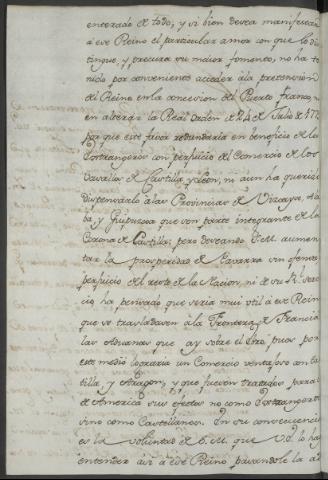 enterado de todo, y si bien desea manifestar
á ese Reino el particular amor con que lo dis
tingue, y procura su maior fomento, no ha te
nido por conveniente acceder á la pretension
del Reino en la concesion del Puerto franco, ni
en alterar la Real orden de 24 de Julio de 177
por que este favor redundaria en beneficio de los
Extrangeros con perjuicio del Comercio de los
Vasallos de Castilla y Leon, ni aun ha querido
dispensarlo á las Provincias de Vizcaya, Ala
ba y Guipuzcoa que son parte integrante de la
Corona de Castilla; pero deseando S.M. aumen
tar la prosperidad de Navarra sin ofensa, ni
perjuicio del resto de la Nacion, ni de su Rl. Servi
cio ha pensado que seria mui util á ese Reino
que se trasladasen á la Frontera de Francia
las Aduanas que ay sobre el Ebro, pues por
este medio lograria un Comercio ventajoso con Cas
tilla, y Aragon, y que fuesen tratados para
de America sus efectos no como Extrangeros
sino como Castellanos. En su consecuencia
es la voluntad de S.M. que V.S. lo haga
entender asi á ese Reino pasandole la